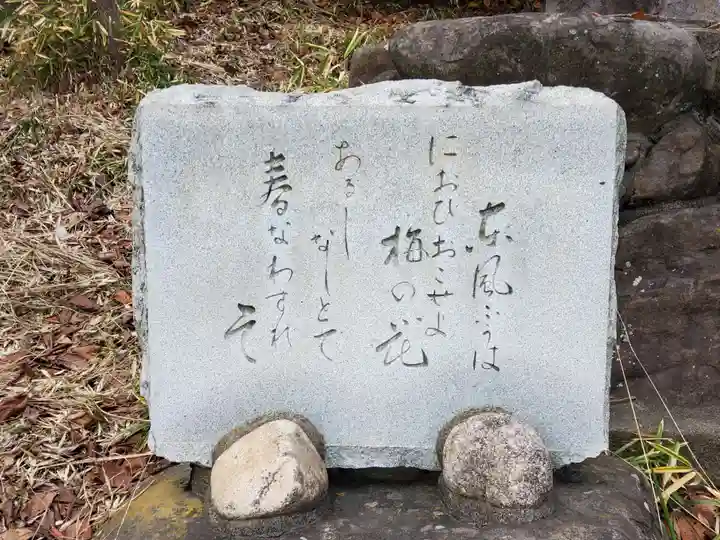 東風ふかは
におひおこせよ
梅の花
あるし
なしとて
春なわすれ
そ